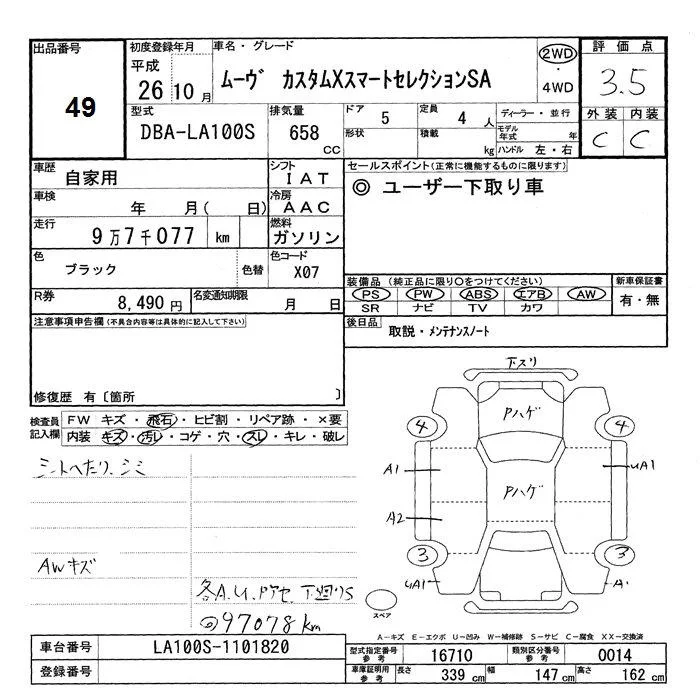 出品番号
49
初度登録年月
平成
26 10 月
車名・グレード
ムーヴ カスタムXスマートセレクションSA
2WD
・
4WD
評価点
3.5
外装 内装
C C
型式
DBA-LA100S
排気量
658 CC
ドア 5
定員 4 人
ディーラー・並行
形状
積載 kg
モデル年式 年
ハンドル 左・右
車歴
自家用
シフト
IAT
車検
年 月( 日)
冷房
AAC
走行
9万7千077 km
燃料
ガソリン
色
ブラック
色替
色コード
X07
R券
8,490 円
名変通知期限
月 日
セールスポイント(正常に機能するものに限ります)
◎ ユーザー下取り車
装備品(純正品に限り○をつけてください)
PS PW ABS エアB AW
SR ナビ TV カワ
新車保証書
有・無
後日品
取説・メンテナンスノート
注意事項申告欄(不具合内容等は具体的に記入して下さい)
修復歴 有〔箇所 〕
検査員記入欄
FW キズ・飛石・ヒビ割・リペア跡・×要
内装 キズ・汚レ・コゲ・穴・スレ・キレ・破レ
シートへたり、シミ
AWキズ
各A.U.Pアセ 下廻りS
◎97078km
下スリ
Pハゲ
Pハゲ
4 4
A1 UA1
A2
3 3
UA1 A1
スペア
A-キズ E-エクボ U-凹み W-補修跡 S-サビ C-腐食 XX-交換済
車台番号
LA100S-1101820
登録番号
型式指定番号 参考
16710
類別区分番号 参考
0014
車庫証明用 参考
長さ 339 cm
幅 147 cm
高さ 162 cm